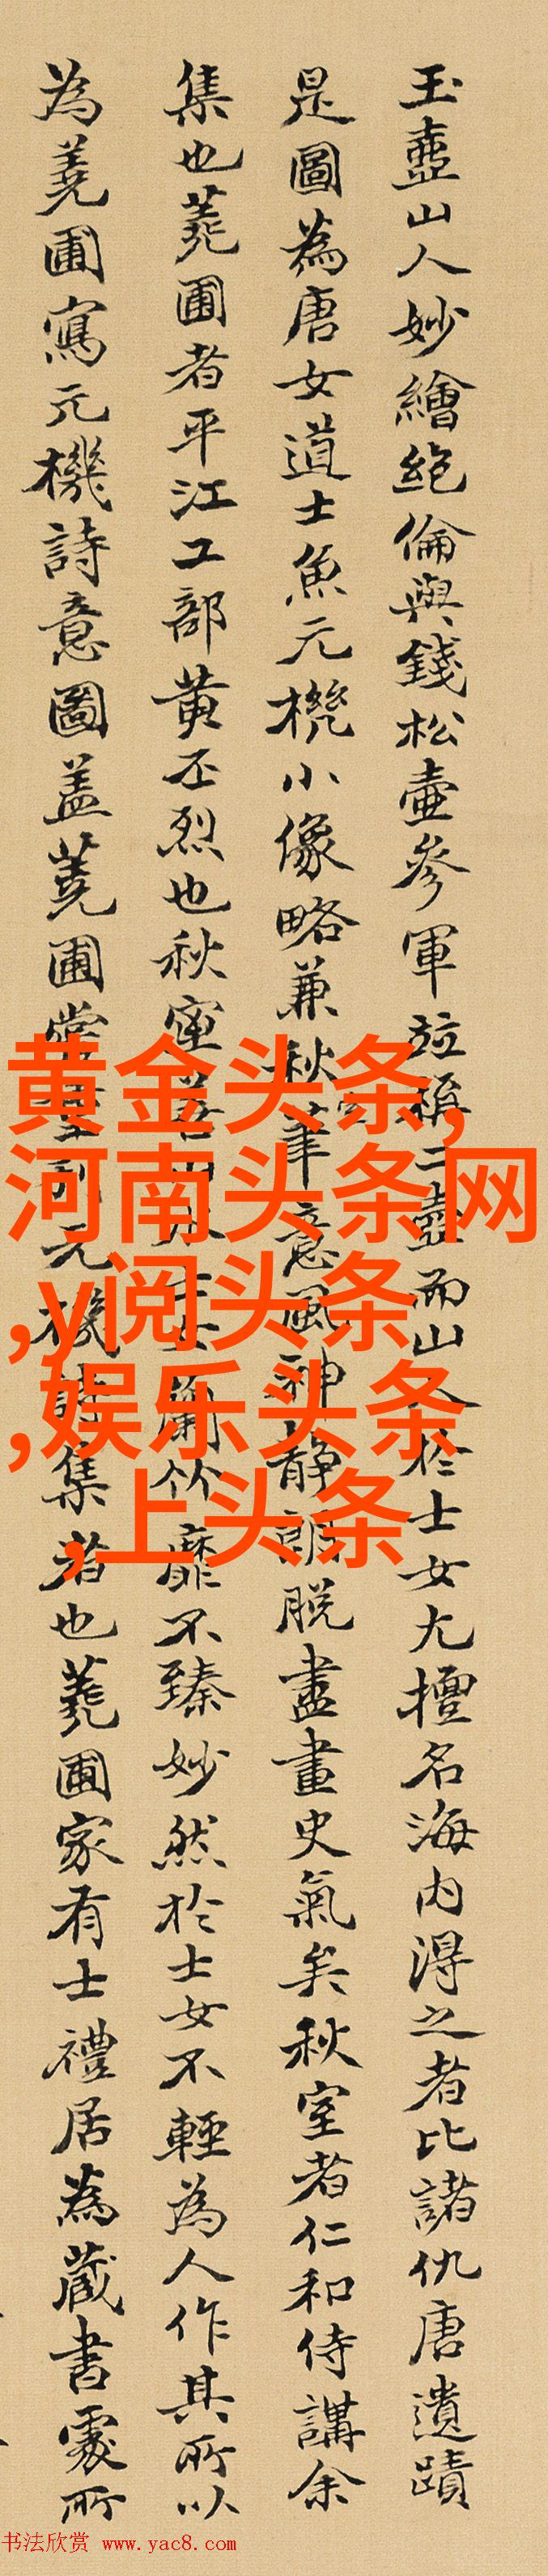 玉壺山人妙繪絶倫與錢松壺參軍竝稱二壺而山人於士女尤擅名海內得之者比諸仇唐遺蹟
是圖為唐女道士魚元機小像略兼秋室筆意風神静朗脱盡畫史氣矣秋室者仁和侍講余
集也蕘圃者平江工部黄丕烈也秋室善山水士女蘭竹靡不臻妙然於士女不輕為人作其所以
為蕘圃寫元機詩意圖盖蕘圃嘗刻元機詩集者也蕘圃家有士禮居為藏書處所
黄金头条,
河南头条网
,y阅头条
,娱乐头条
,上头条
书法欣赏 www.yac8.com